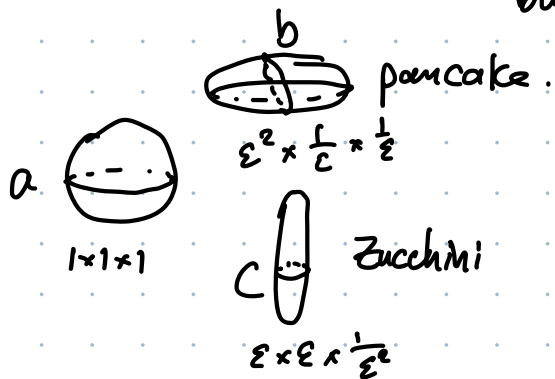 b
pancake.
ε² × 1/ε × 1/ε
a
1×1×1
C
Zucchini
ε × ε × 1/ε²